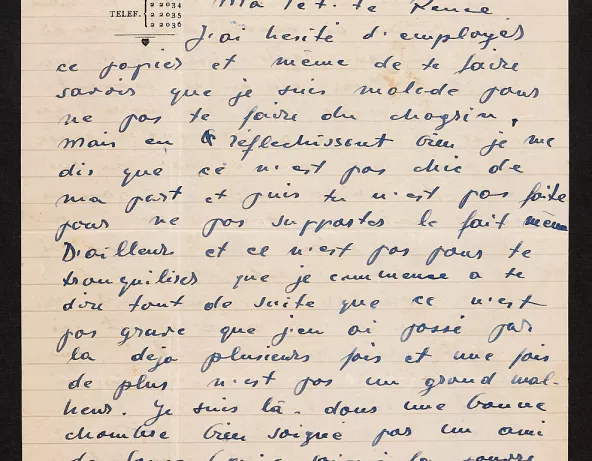 TELEF. 2 2034
2 2035
2 2036
Ma
J'ai hesité d'employer
ce papier et même de te faire
savoir que je suis malade pour
ne pas te faire du chagrin,
mais en réflechissent bien je me
dis que ce n'est pas chic de
ma part et puis tu n'est pas faite
pour ne pas supporter le fait même
D'ailleurs et ce n'est pas pour te
tranquiliser que je commence a te
dire tout de suite que ce n'est
pas grave que j'en ai passé par
la déja plusieurs fois et une fois
de plus n'est pas un grand mal-
heur. Je suis là. dans une bonne
chambre bien soignée par un ami